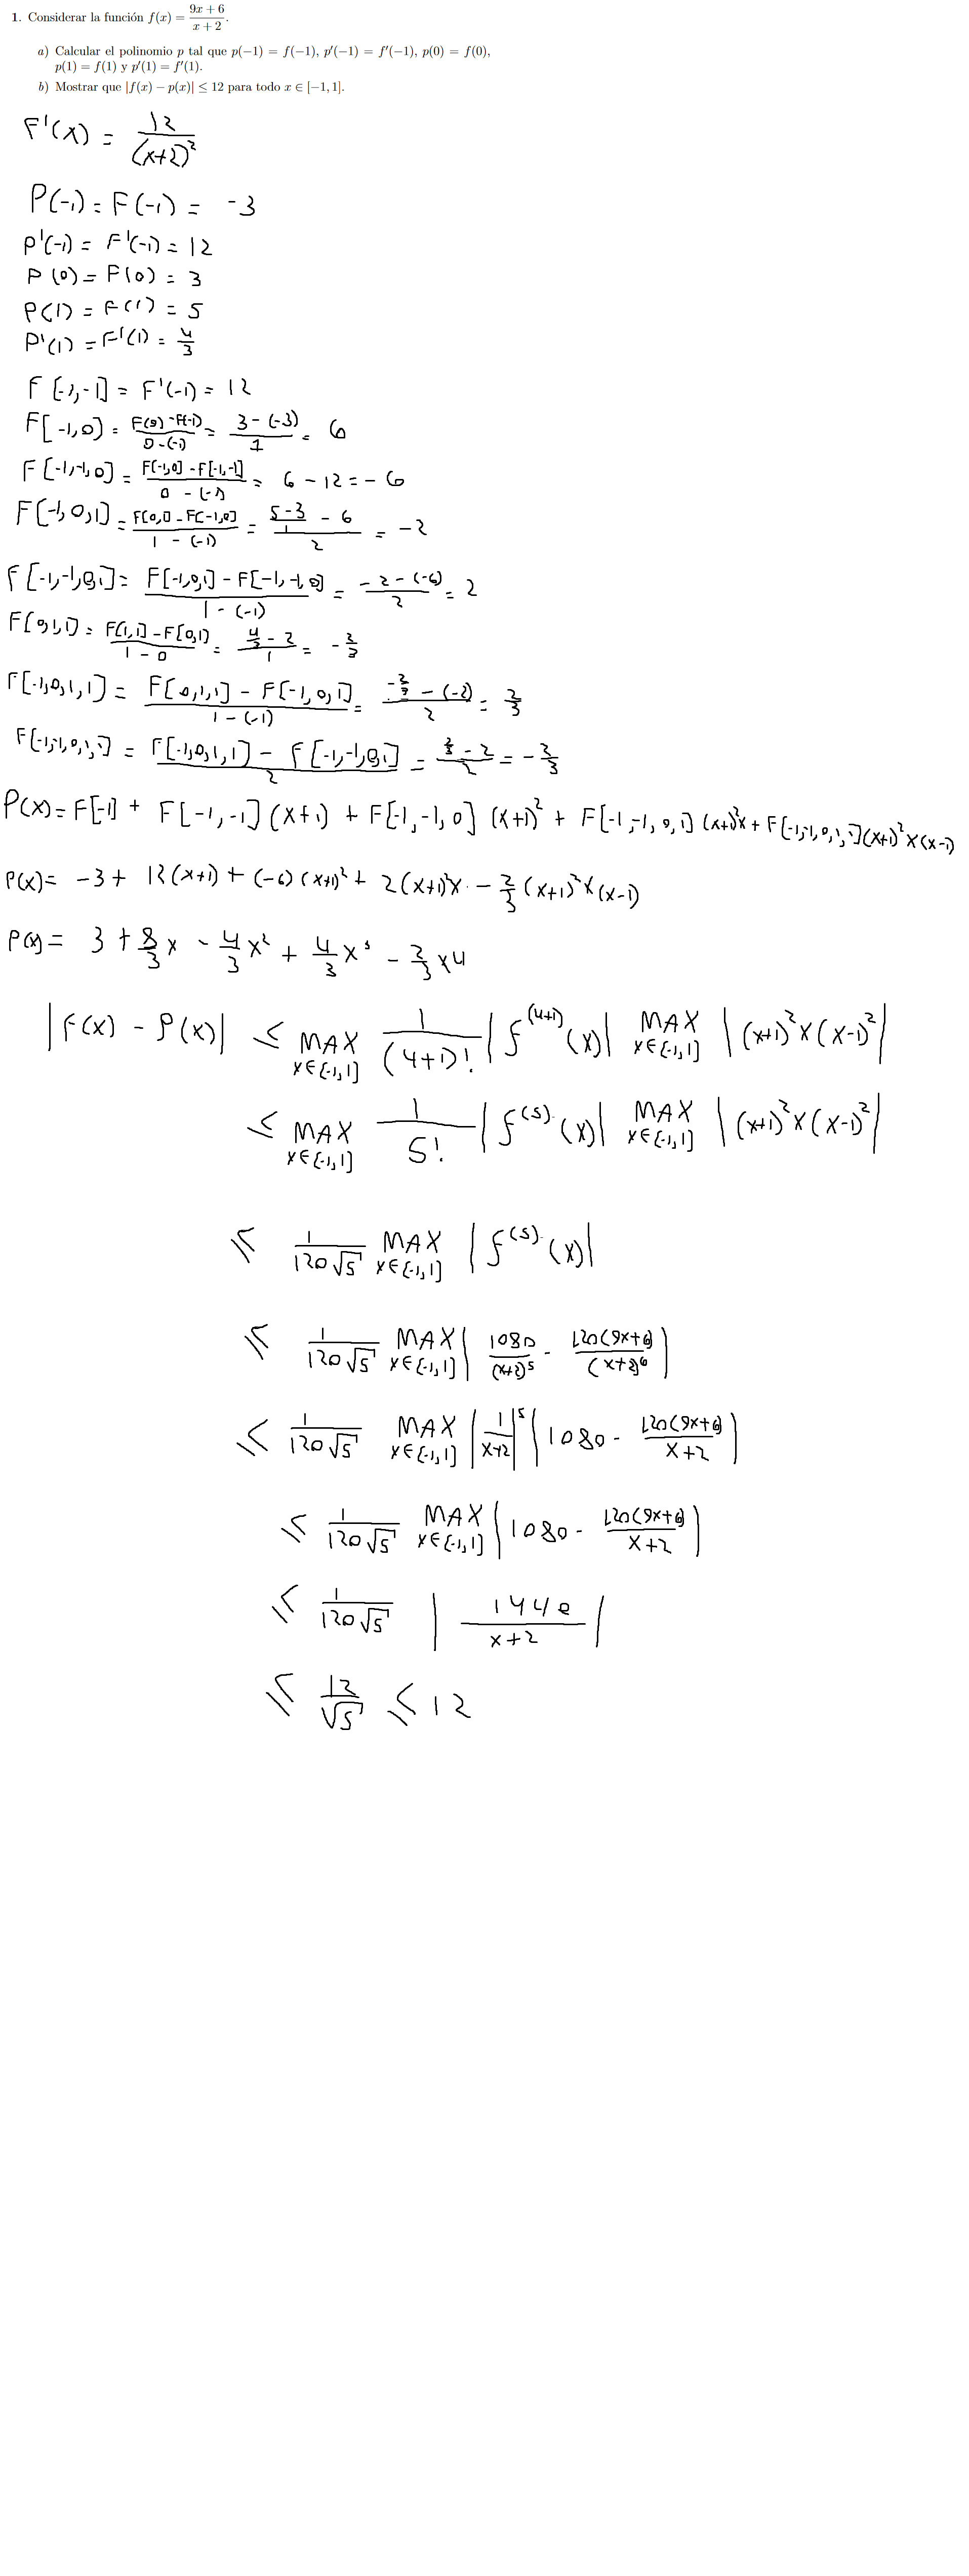 1. Considerar la función f(x) = (9x + 6)/(x + 2).
a) Calcular el polinomio p tal que p(−1) = f(−1), p′(−1) = f′(−1), p(0) = f(0),
p(1) = f(1) y p′(1) = f′(1).
b) Mostrar que |f(x) − p(x)| ≤ 12 para todo x ∈ [−1, 1].
F'(x) = 12/(x+2)²
P(-1) = F(-1) = -3
P'(-1) = F'(-1) = 12
P(0) = F(0) = 3
P(1) = F(1) = 5
P'(1) = F'(1) = 4/3
F[-1,-1] = F'(-1) = 12
F[-1,0] = (F(0) - F(-1))/(0-(-1)) = (3-(-3))/1 = 6
F[-1,-1,0] = (F[-1,0] - F[-1,-1])/(0-(-1)) = 6 - 12 = -6
F[-1,0,1] = (F[0,1] - F[-1,0])/(1-(-1)) = ((5-3)/1 - 6)/2 = -2
F[-1,-1,0,1] = (F[-1,0,1] - F[-1,-1,0])/(1-(-1)) = (-2-(-6))/2 = 2
F[0,1,1] = (F[1,1] - F[0,1])/(1-0) = (4/3 - 2)/1 = -2/3
F[-1,0,1,1] = (F[0,1,1] - F[-1,0,1])/(1-(-1)) = (-2/3 - (-2))/2 = 2/3
F[-1,-1,0,1,1] = (F[-1,0,1,1] - F[-1,-1,0,1])/2 = (2/3 - 2)/2 = -2/3
P(x) = F[-1] + F[-1,-1](x+1) + F[-1,-1,0](x+1)² + F[-1,-1,0,1](x+1)²x + F[-1,-1,0,1,1](x+1)²x(x-1)
P(x) = -3 + 12(x+1) + (-6)(x+1)² + 2(x+1)²x - 2/3(x+1)²x(x-1)
P(x) = 3 + 8/3x - 4/3x² + 4/3x³ - 2/3x4
|F(x) - P(x)| ≤ MAX x∈[-1,1] 1/(4+1)! |f^(4+1)(x)| MAX x∈[-1,1] |(x+1)²x(x-1)²|
≤ MAX x∈[-1,1] 1/5! |f^(5)(x)| MAX x∈[-1,1] |(x+1)²x(x-1)²|
≤ 1/(120√5) MAX x∈[-1,1] |f^(5)(x)|
≤ 1/(120√5) MAX x∈[-1,1] |1080/(x+2)⁵ - 120(9x+6)/(x+2)⁶|
≤ 1/(120√5) MAX x∈[-1,1] |1/(x+2)|⁵ |1080 - 120(9x+6)/(x+2)|
≤ 1/(120√5) MAX x∈[-1,1] |1080 - 120(9x+6)/(x+2)|
≤ 1/(120√5) |1440/(x+2)|
≤ 12/√5 ≤ 12